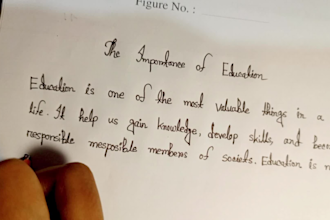 Figure No. :
The Impordance of Education
Education is one of the most valuable things in a
life. It help us gain knowledge, develop skills, and
responsible mesposible members of Education is